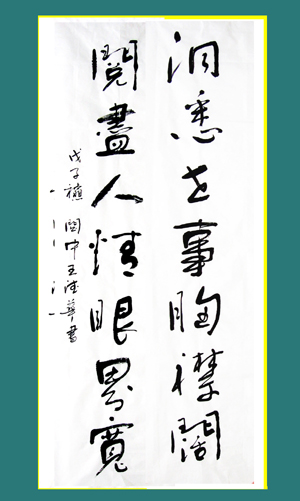 洞悉世事胸襟闊
閱盡人情眼界寬
戊子 中王華書